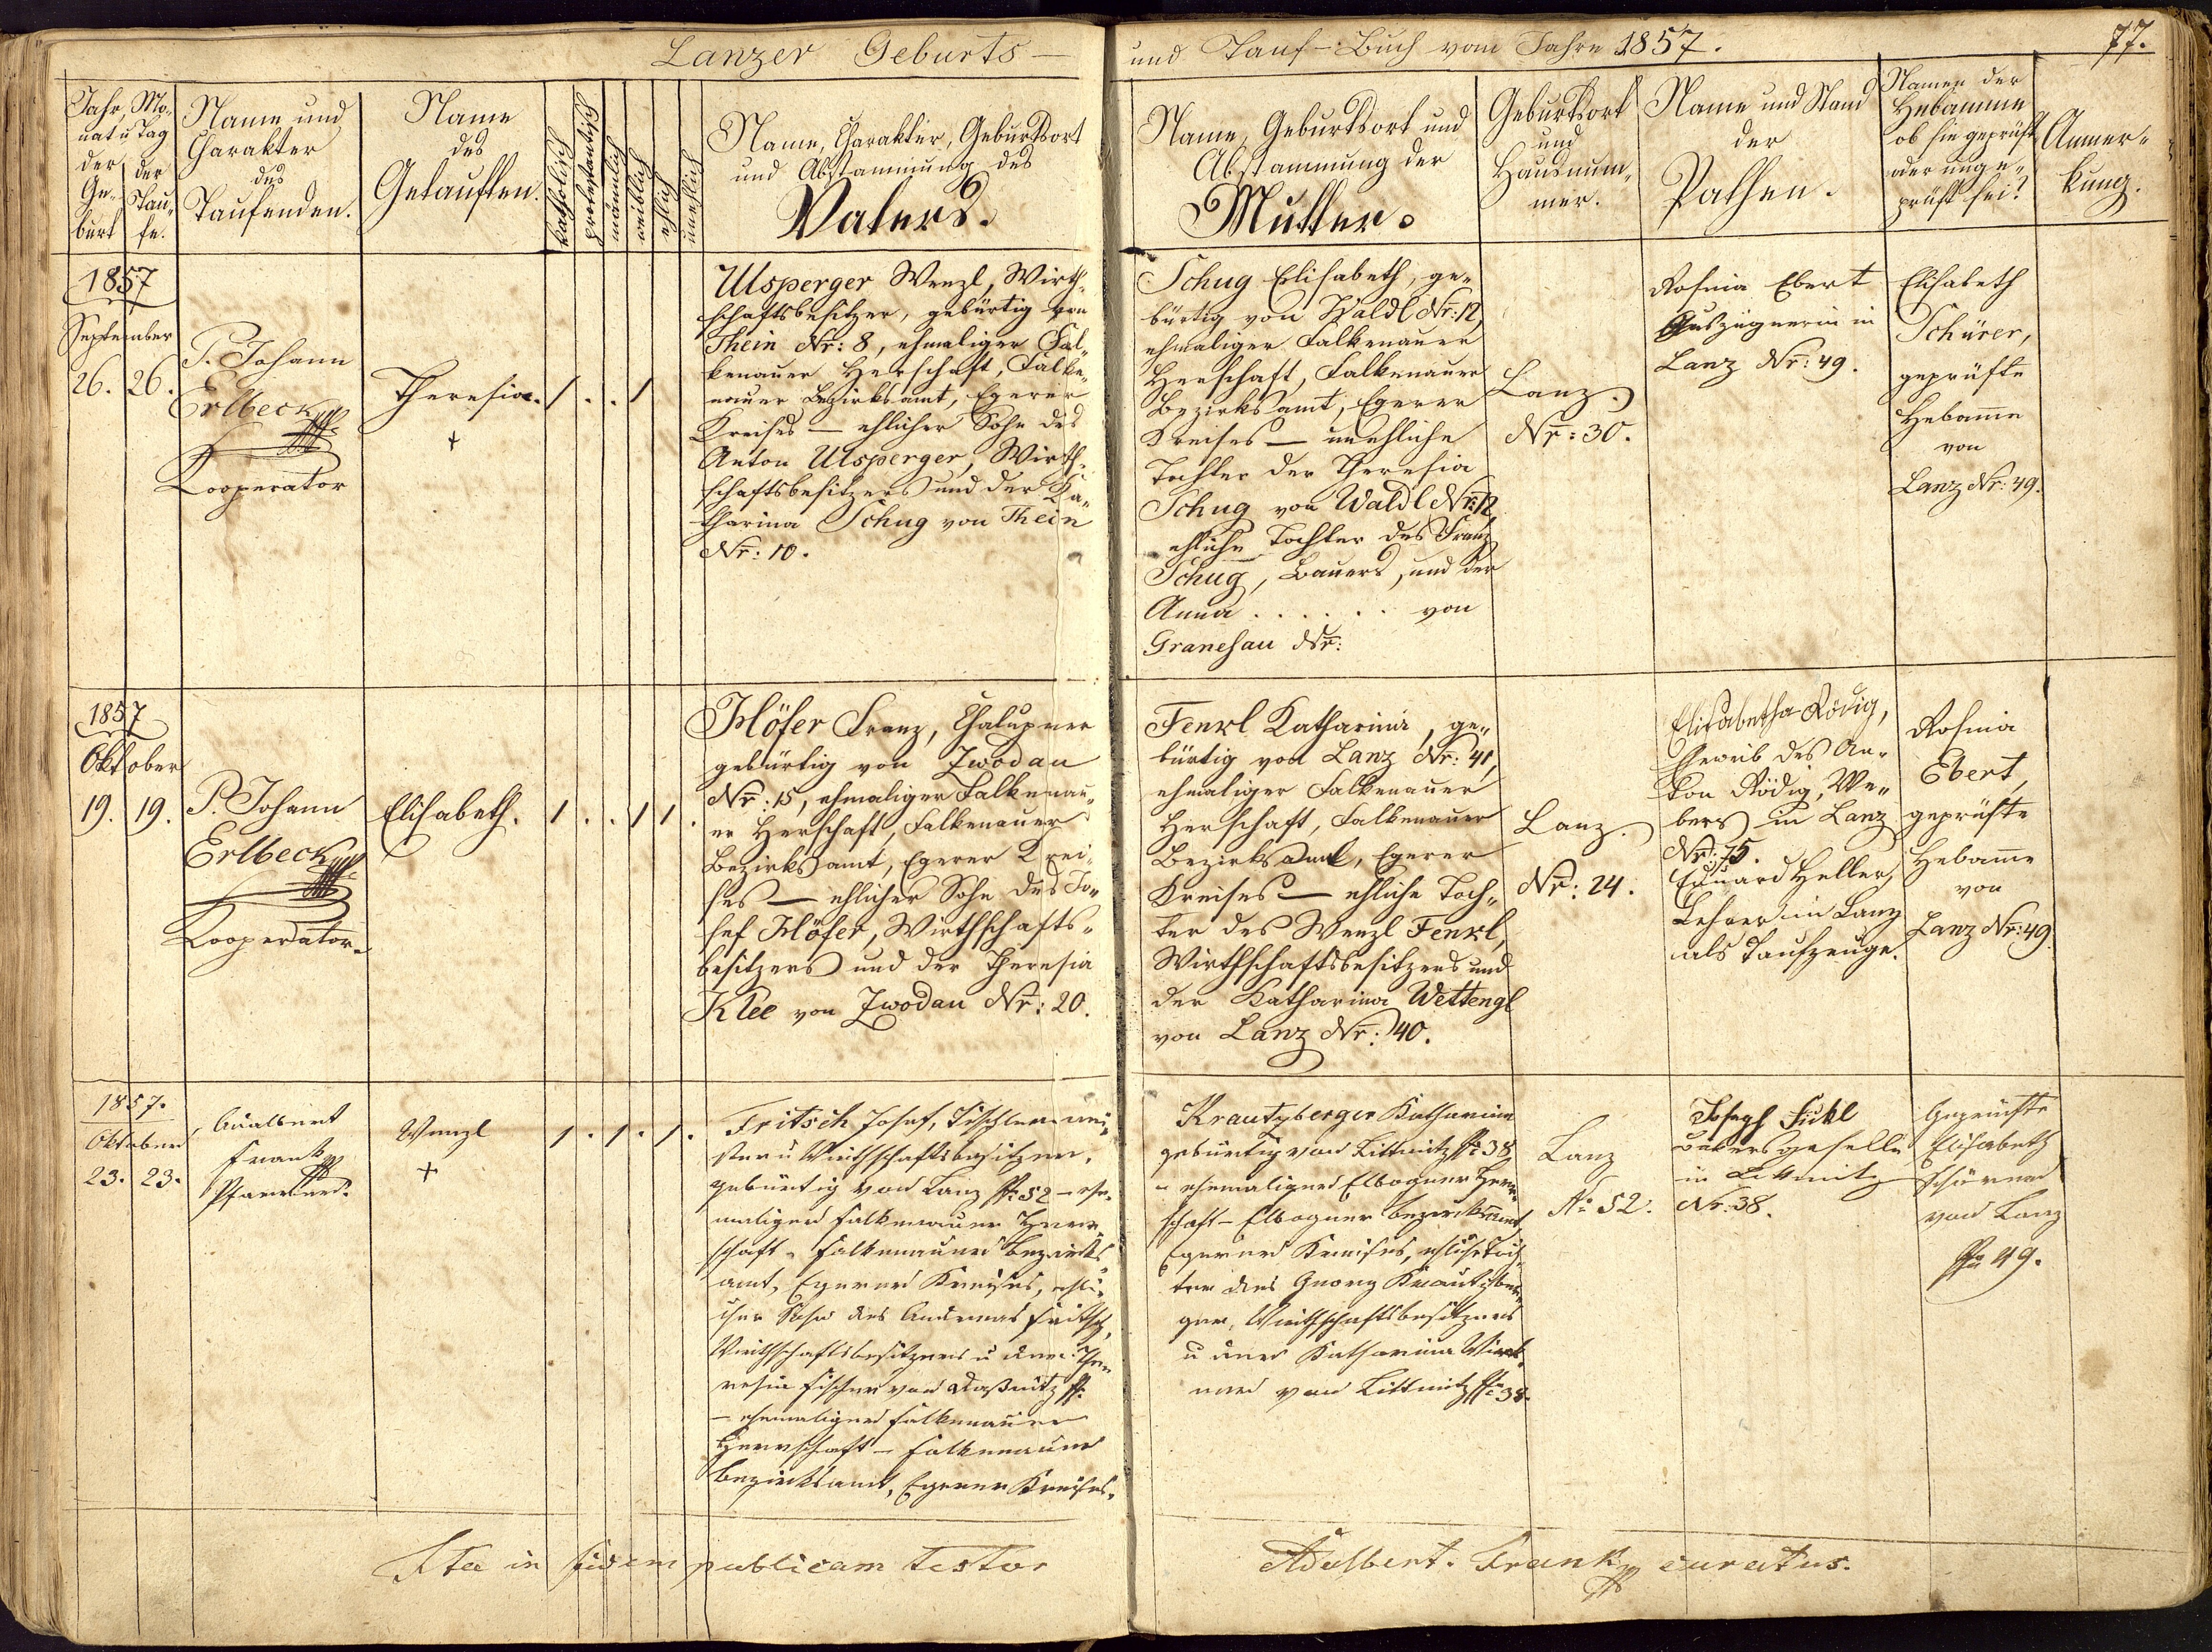 Lanzer Geburts –
und Tauf-Buch vom Jahre 1857.
77.
Jahr, Mo-
nat u Tag
der Ge-
burt
der
Tau-
fe.
Name und
Charakter
des
Taufenden.
Name
des
Getauften.
katholisch
protestantisch
männlich
weiblich
ehlich
unehlich
Name, Charakter, Geburtsort
und Abstammung des
Vaters.
Name, Geburtsort und
Abstammung der
Mutter.
Geburtsort
und
Hausnum-
mer.
Name und Stand
der
Pathen.
Namen der
Hebamme
ob sie geprüft
oder unge-
prüft sei?
Anmer-
kung.
1857
September
26. 26.
P. Johann
Erlbeck
Kooperator
Theresia.
+
1 . . 1
Ulsperger Wenzl, Wirth-
schaftsbesitzer, gebürtig von
Thein Nr: 8, ehmaliger Fal-
kenauer Herschaft, Falke-
nauer Bezirksamt, Egerer
Kreises — ehlicher Sohn des
Anton Ulsperger, Wirth-
schaftsbesitzers und der Ka-
tharina Schug von Thein
Nr: 10.
Schug Elisabeth, ge-
bürtig von Waldl Nr: 12,
ehmaliger Falkenauer
Herschaft, Falkenauer
Bezirksamt, Egerer
Kreises — unehliche
Tochter der Theresia
Schug von Waldl Nr: 12,
ehliche Tochter des Franz
Schug, Bauers, und der
Anna . . . . . . von
Granesau Nr:
Lanz.
Nr: 30.
Rosina Ebert
Auszüglerin in
Lanz Nr: 49.
Elisabeth
Schürer,
geprüfte
Hebamme
von
Lanz Nr: 49.
1857
Oktober
19. 19.
P. Johann
Erlbeck
Kooperator.
Elisabeth.
1 . . 1 1 .
Höfer Franz, Chalupner
gebürtig von Zwodau
Nr: 15, ehmaliger Falkenau-
er Herschaft, Falkenauer
Bezirksamt, Egerer Krei-
ses — ehlicher Sohn des Jo-
sef Höfer, Wirthschafts-
besitzers und der Theresia
Klee von Zwodau Nr: 20.
Fenkl Katharina, ge-
bürtig von Lanz Nr: 41,
ehmaliger Falkenauer
Herschaft, Falkenauer
Bezirksamt, Egerer
Kreises — ehliche Toch-
ter des Wenzl Fenkl,
Wirthschaftsbesitzers und
der Katharina Wettengl
von Lanz Nr: 40.
Lanz.
Nr: 24.
Elisabetha Rödig,
Eheweib des An-
ton Rödig, We-
bers in Lanz
Nr: 75.
Eduard Heller,
Lehrer in Lanz
als Taufzeuge.
Rosina
Ebert,
geprüfte
Hebamme
von
Lanz Nr: 49.
1857.
Oktober
23. 23.
Adalbert
Frank
Pfarrer.
Wenzl
+
1 . 1 . 1 .
Fritsch Josef, Tischlermei-
ster u Wirthschaftsbesitzer,
gebürtig von Lanz N: 52 – ehe-
maliger Falkenauer Herr-
schaft – Falkenauer Bezirks-
amt, Egerer Kreises, ehli-
cher Sohn des Andreas Fritsch,
Wirthschaftsbesitzers u der The-
resia Fischer von Roßnitz N:
– ehemaliger Falkenauer
Herrschaft – Falkenauer
Bezirksamt, Egerer Kreises.
Krautzberger Katharina
gebürtig von Littmitz N: 38
– ehemaliger Elbogner Herr-
schaft – Elbogner Bezirksamt,
Egerer Kreises, ehliche Toch-
ter des Georg Krautzber-
ger, Wirthschaftsbesitzers
u der Katharina
von Littmitz N: 38.
Lanz
No 52.
Joseph Fickl
Bäckergeselle
in Littmitz
Nr: 38.
Geprüfte
Elisabeth
Schürer
von Lanz
No 49.
Ita in fidem publicam testor
Adalbert Frank curatus.